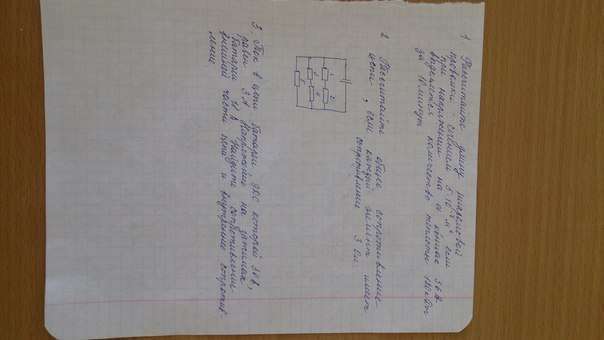 1 Рассчитайте длину никелевой
проволки сечением 5·10 м², если
при напряжении на её концах 36 В
выделяется количество теплоты
за 10 минут
2 Рассчитайте общее сопротивление
цепи, если каждый элемент имеет
сопротивление 3 Ом
3 Ток в цепи батареи ЭДС которой 36В,
равен 3А Напряжение на зажимах
батареи 18 В. Найдите сопротивление
внешней части цепи и внутреннее сопротив-